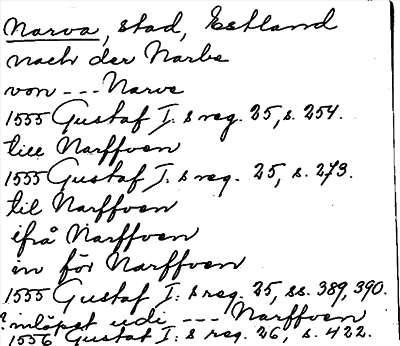 Narva, stad, Estland
nach der Narbe
von --- Narve
1555 Gustaf I: s reg. 25, s. 254.
till Narffven
1555 Gustaf I: s reg. 25, s. 273.
til Narffven
ifrå Narffven
in för Narffven
1555 Gustaf I: s reg. 25, ss. 389, 390.
? inlöpet udi --- Narffven
1556 Gustaf I: s reg. 26, s. 422.